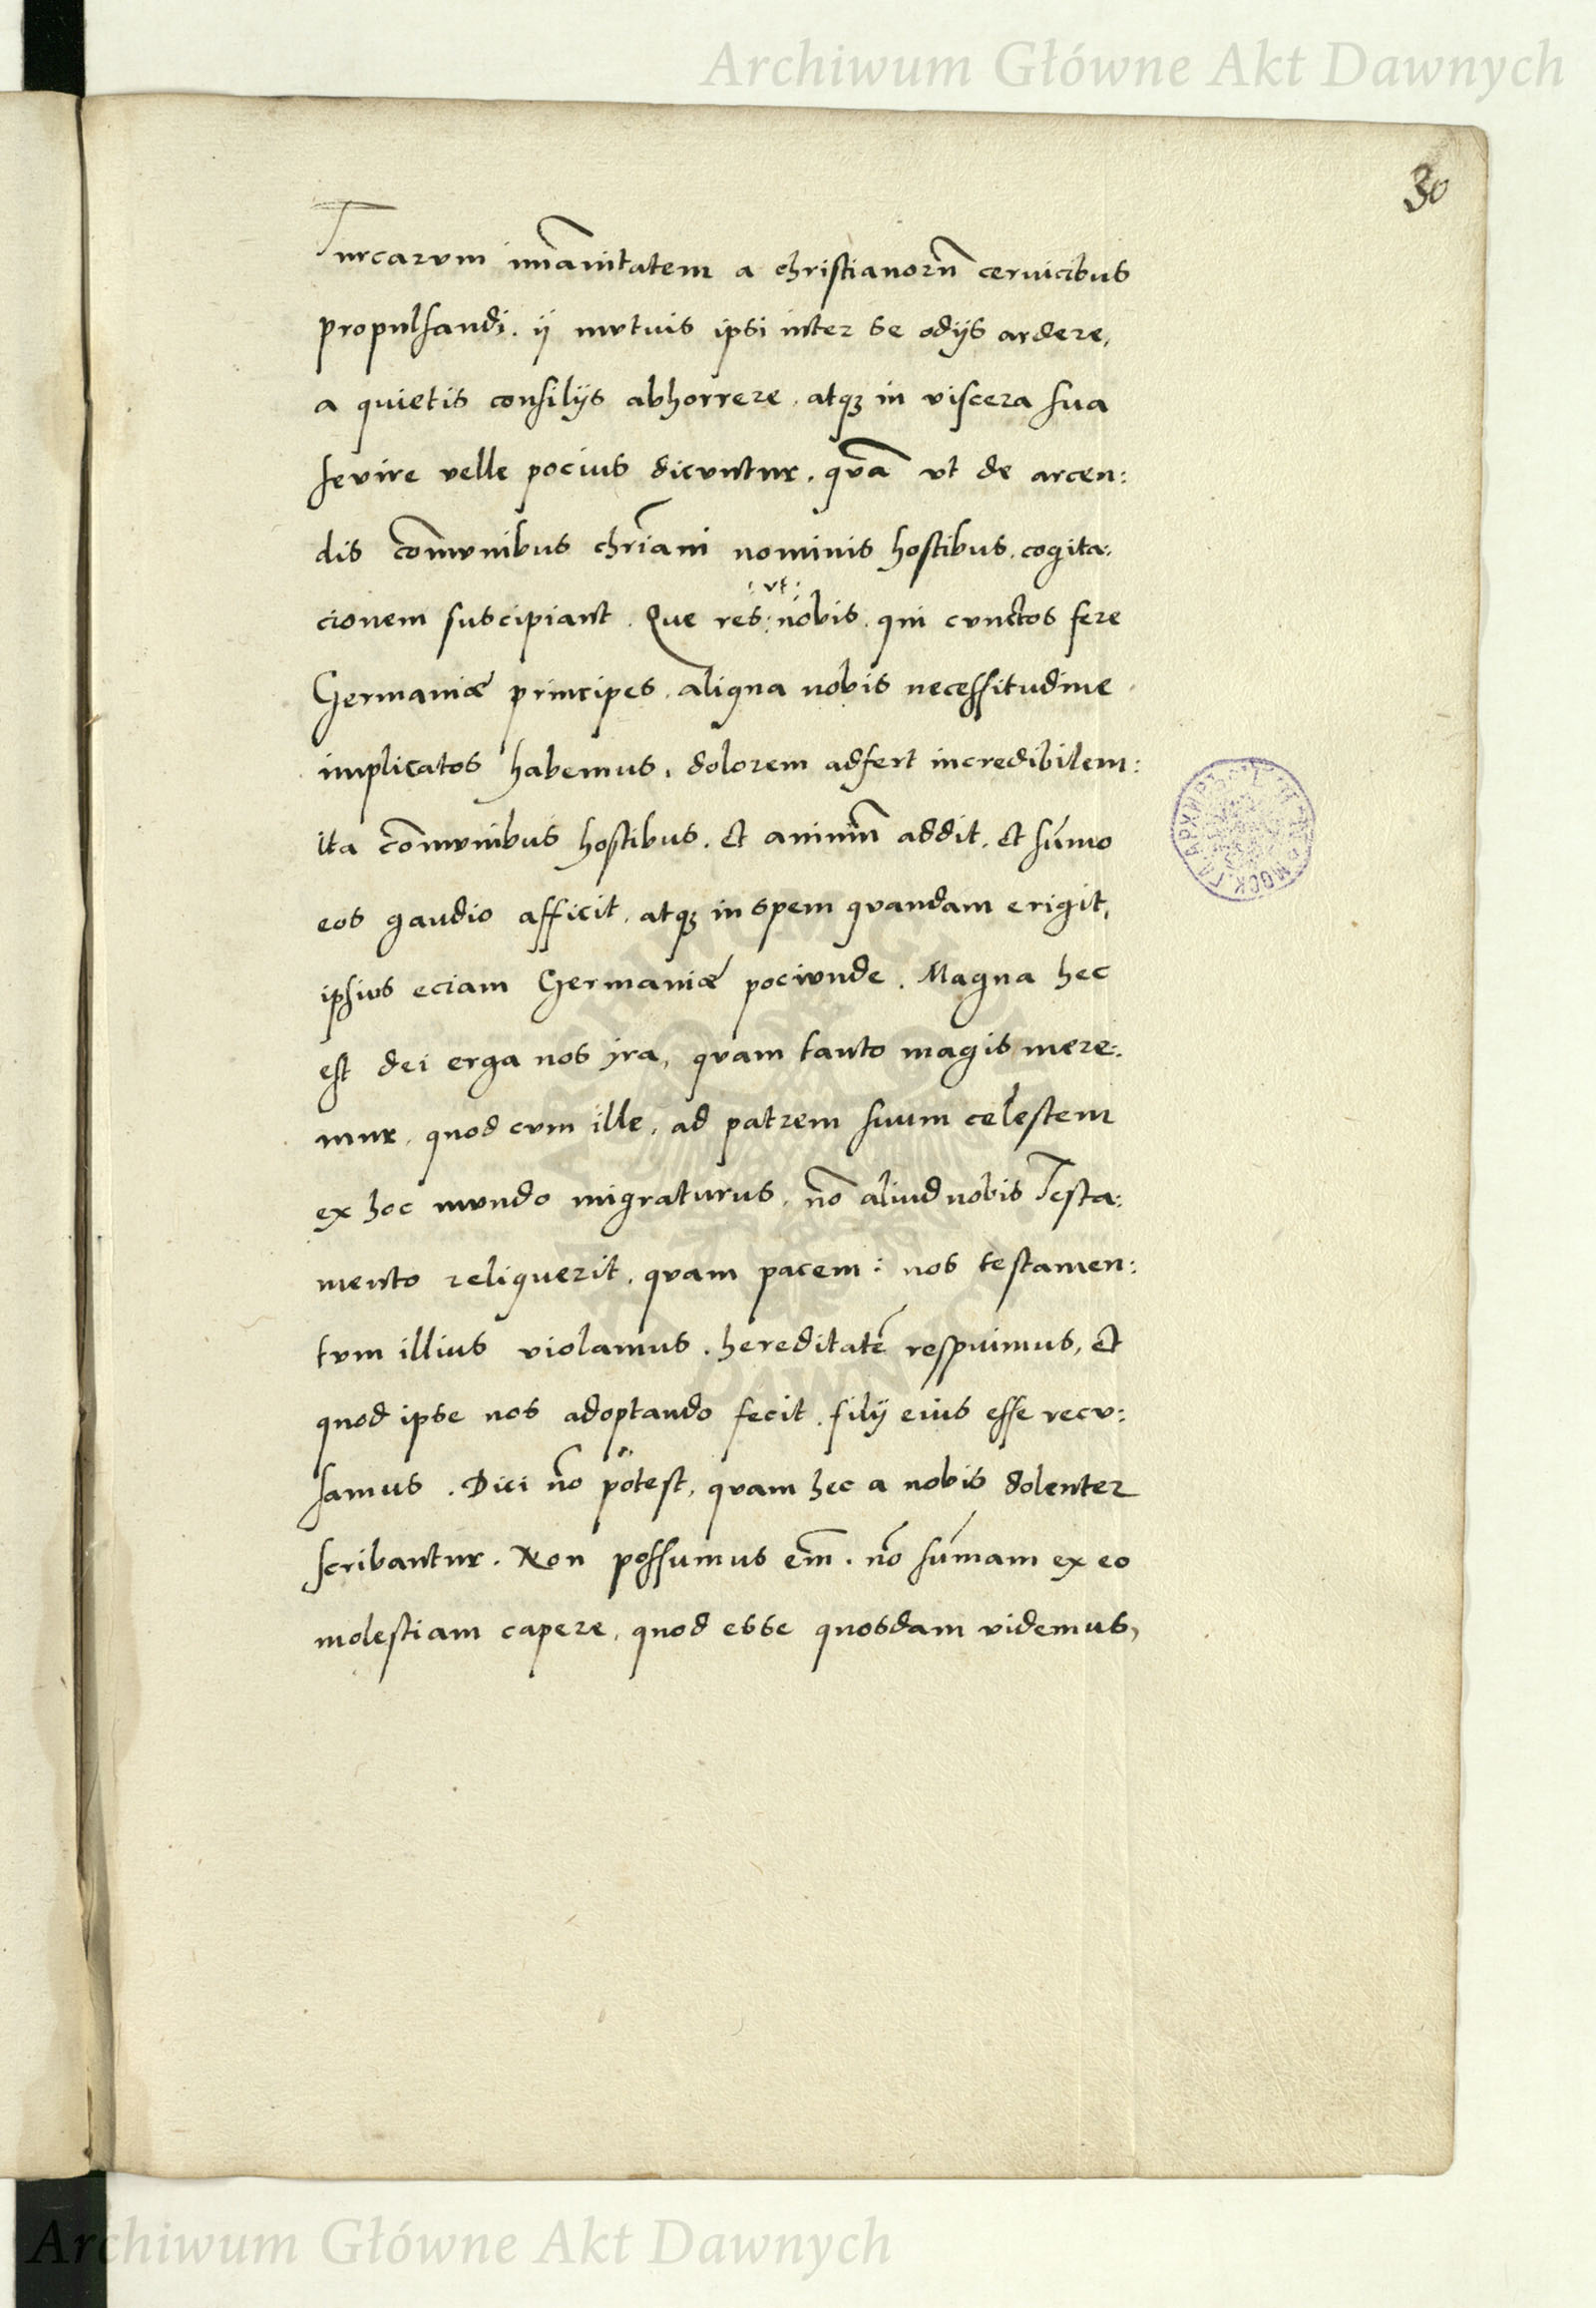 Archiwum Główne Akt Dawnych
30
Turcarum im̄anitatem a christianorū cervicibus
propulsandi. ij mutuis ipsi inter se odijs ardere,
a quietis consilijs abhorrere, atqȝ in viscera sua
sevire velle pocius dicuntur, quā ut de arcen:
dis com̄unibus chr̄iani nominis hostibus, cogita:
: ut :
cionem suscipiant. Que res: nobis, qui cunctos fere
Germaniæ principes, aliqua nobis necessitudine
implicatos habemus, dolorem adfert incredibilem:
ita com̄unibus hostibus, et animū addit, et sum̄o
eos gaudio afficit, atqȝ in spem quandam erigit,
ipsius eciam Germaniæ pociunde. Magna hec
est dei erga nos ira, quam tanto magis mere:
mur, quod cum ille, ad patrem suum celestem
ex hoc mundo migraturus, nō aliud nobis Testa:
mento reliquerit, quam pacem: nos testamen:
tum illius violamus, hereditatē respuimus, et
quod ipse nos adoptando fecit, filij eius esse recu:
samus. Dici nō potest, quam hec a nobis dolenter
scribantur. Non possumus em̄, nō sum̄am ex eo
molestiam capere, quod esse quosdam videmus,
Archiwum Główne Akt Dawnych